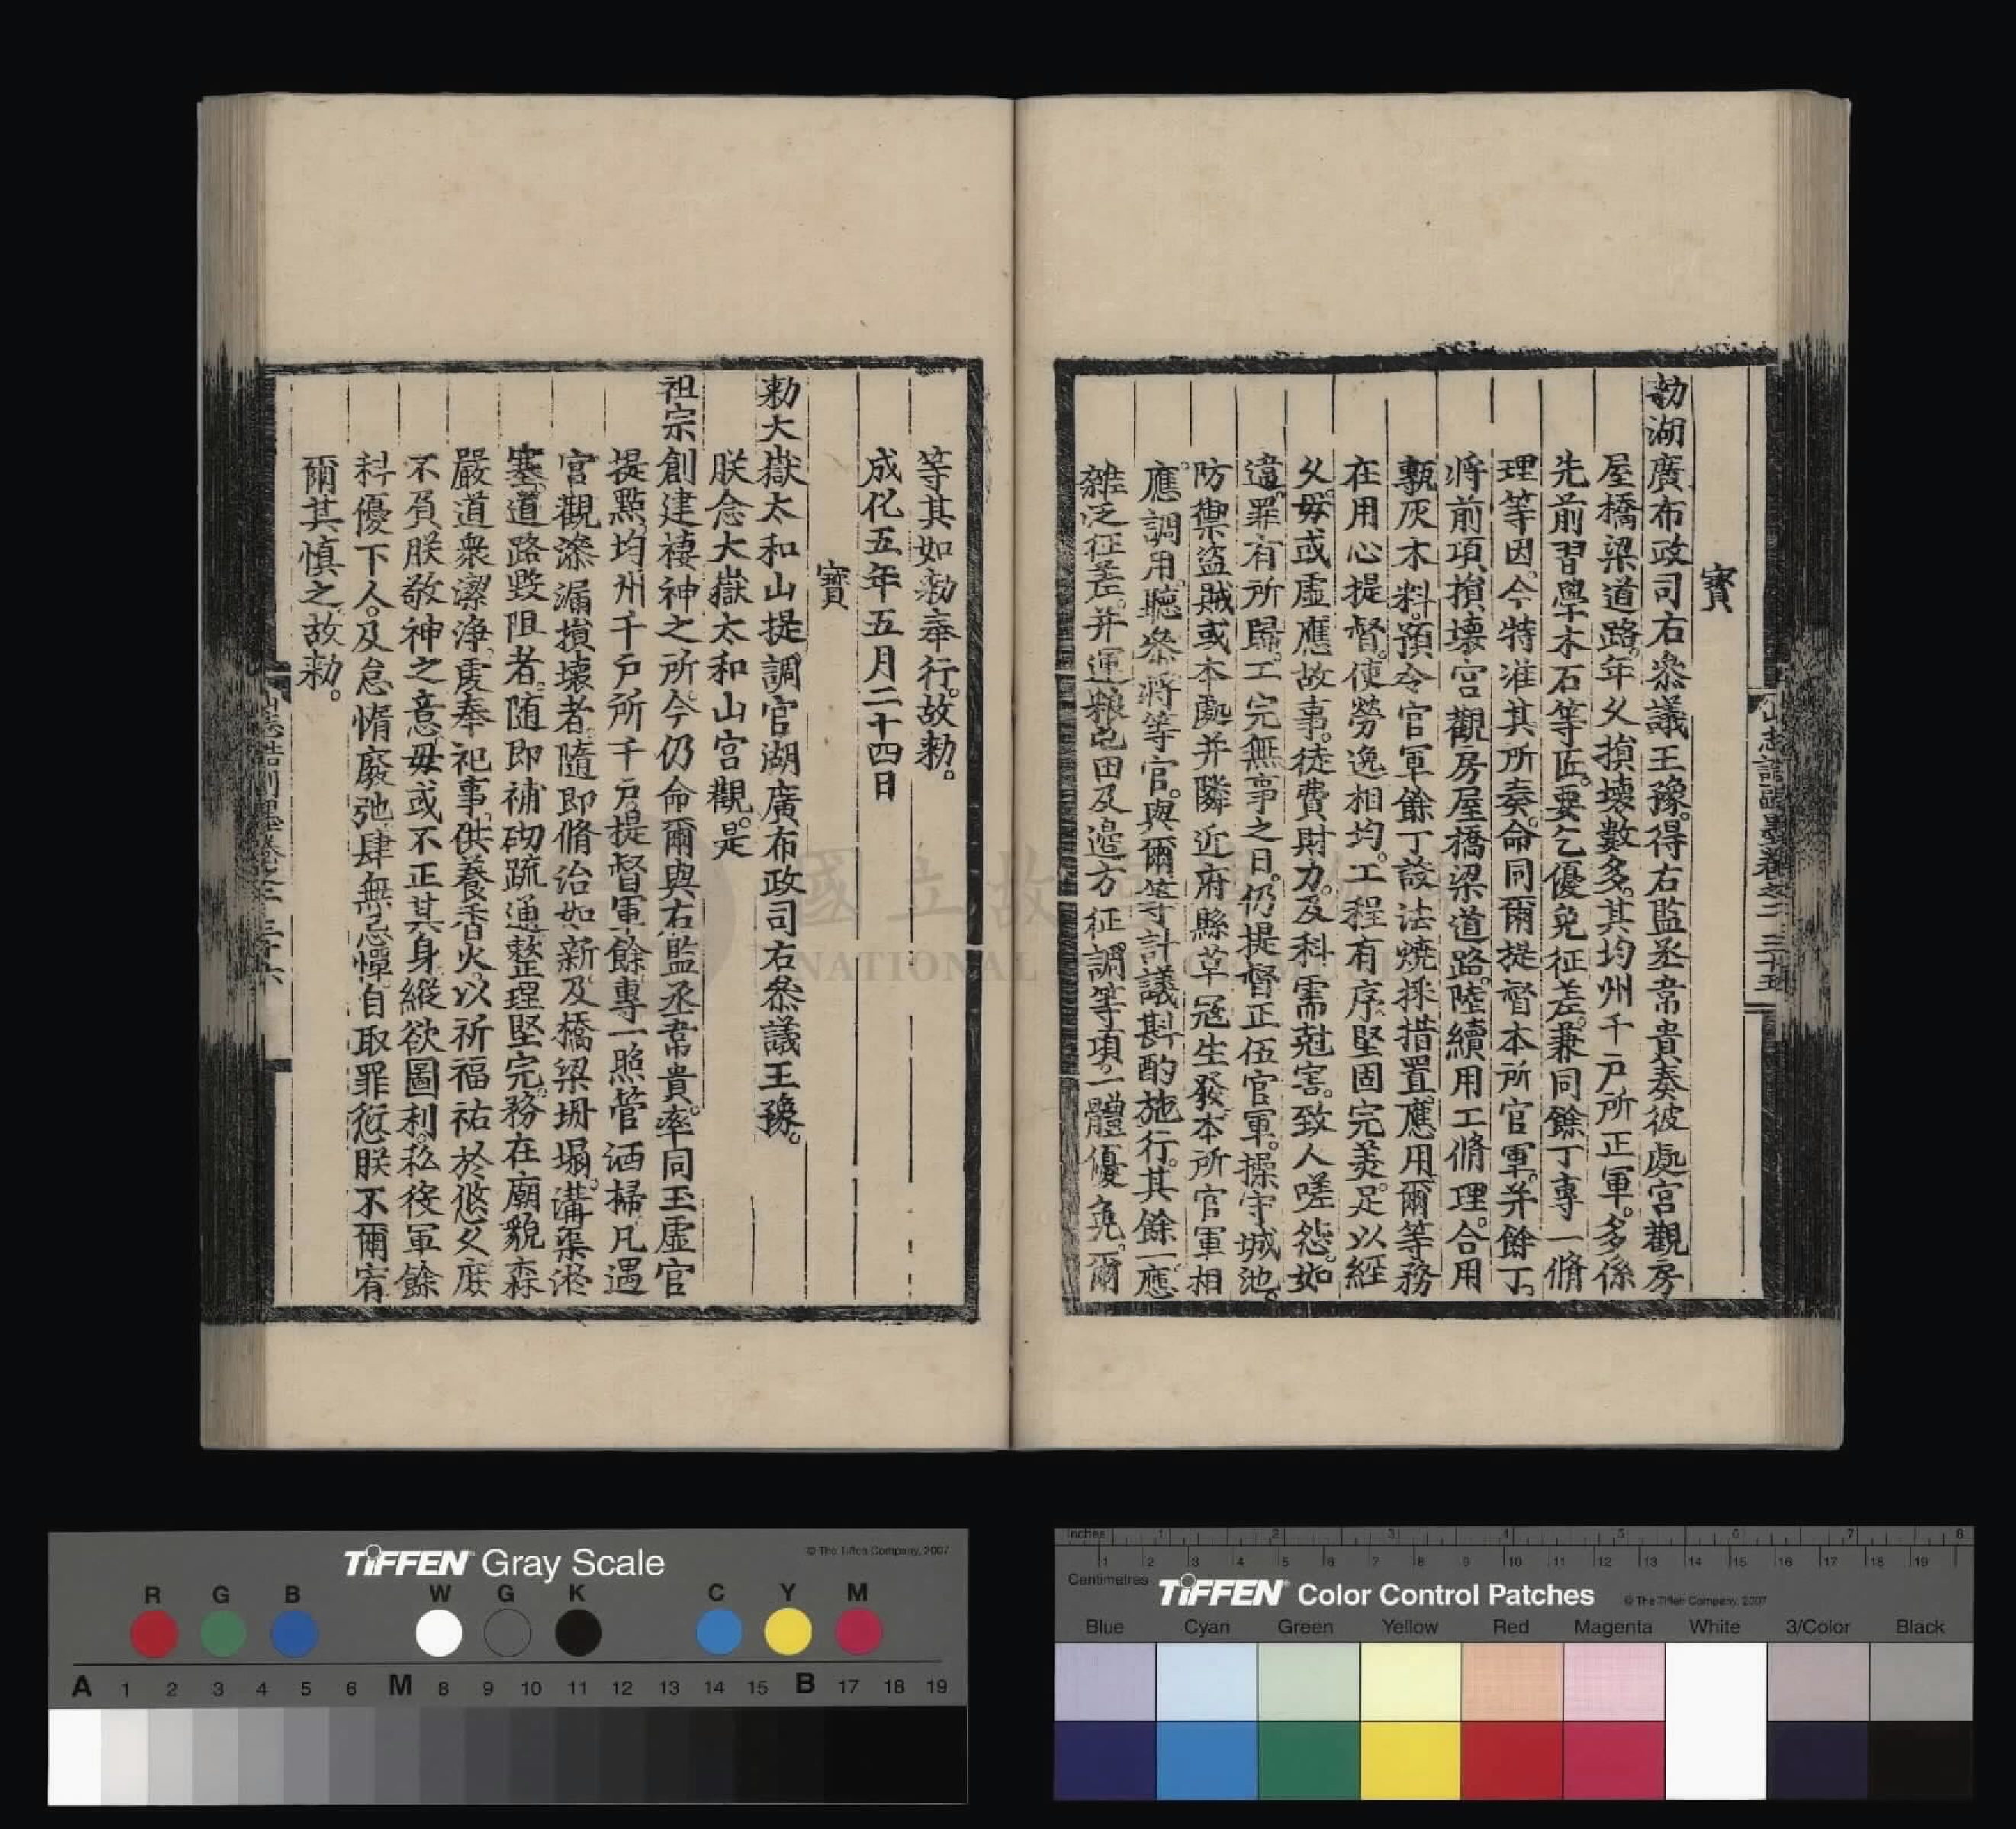 寳
勑湖廣布政司右叅議王豫。得右監丞常貴奏彼處宫觀房
屋橋梁道路。年久損壊數多。其均州千户所正軍。多係
先前習學木石等匠。要乞優免征差。兼同餘丁專一脩
理等因。今特准其所奏。命同爾提督本所官軍。并餘丁。
將前項損壊宫觀房屋橋梁道路。陸續用工脩理。合用
甎灰木料。預令官軍餘丁設法燒採措置。應用爾等務
在用心提督。使勞逸相均。工程有序。堅固完美。足以經
久。毋或虚應故事。徒費財力。及科需尅害。致人嗟怨。如
違。罪有所歸。工完無事之日。仍提督正伍官軍。操守城池。
防禦盜賊。或本處并隣近府縣草冦生發。本所官軍相
應調用。聽叅將等官。與爾等計議斟酌施行。其餘一應
雜泛征差。并運粮屯田及邉方征調等項。一體優免。爾
等其如勑奉行。故勑。
成化五年五月二十四日
寳
勑大嶽太和山提調官湖廣布政司右叅議王豫。
朕念大嶽太和山宫觀。是
祖宗創建棲神之所。今仍命爾與右監丞常貴。率同玉虚官
提點。均州千户所千户。提督軍餘。專一照管洒掃。凡遇
宫觀滲漏損壊者。隨即脩治如新。及橋梁坍塌。溝渠淤
塞。道路毁阻者。随即補砌疏通。整理堅完。務在廟貌森
嚴。道衆潔浄。䖍奉祀事。供養香火。以祈福祐於悠久。庻
不負朕敬神之意。毋或不正其身。縱欲圖利。私役軍餘
科優下人。及怠惰廢弛。肆無忌憚。自取罪愆。朕不爾宥
爾其慎之。故勑。
TiFFEN Gray Scale
© The Tiffen Company, 2007
R G B W G K C Y M
A 1 2 3 4 5 6 M 8 9 10 11 12 13 14 15 B 17 18 19
Inches 1 2 3 4 5 6 7 8
1 2 3 4 5 6 7 8 9 10 11 12 13 14 15 16 17 18 19
Centimetres
TiFFEN Color Control Patches
© The Tiffen Company, 2007
Blue Cyan Green Yellow Red Magenta White 3/Color Black